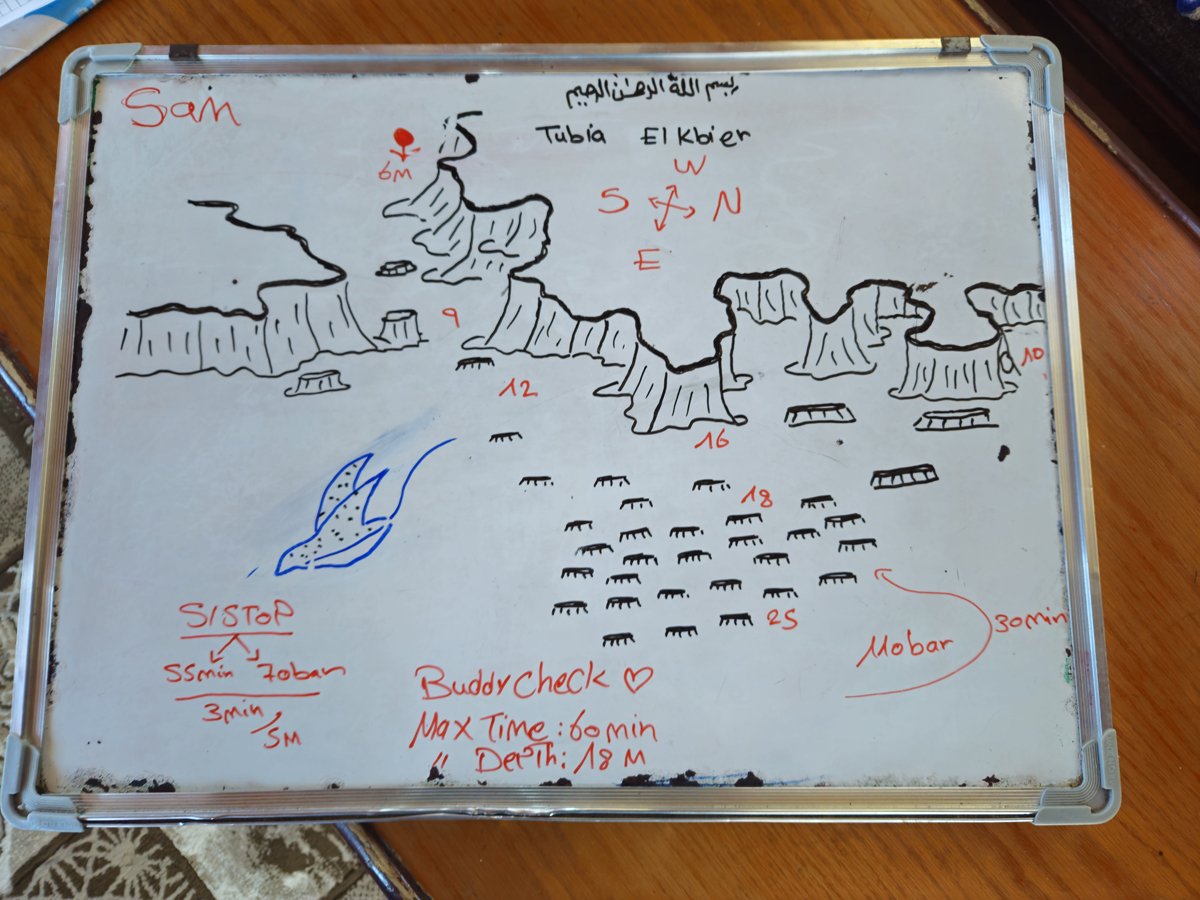 Sam
بسم الله الرحمن الرحيم
Tubia El Kbier
6M
W
S N
E
9
10
12
16
18
25
S/STOP
55min 70bar
3min/5M
30min
110bar
Buddy Check ♡
Max Time : 60min
" Depth: 18 M